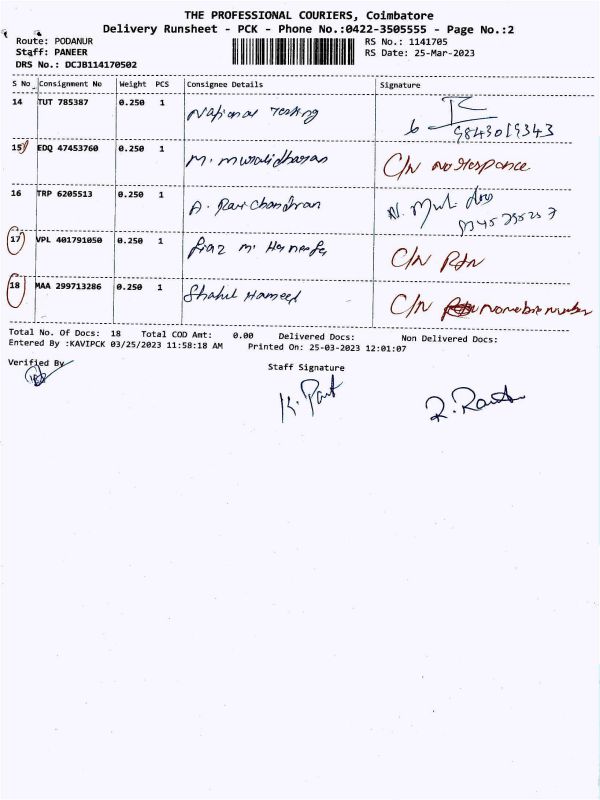 THE PROFESSIONAL COURIERS, Coimbatore
Delivery Runsheet - PCK - Phone No.:0422-3505555 - Page No.:2
Route: PODANUR RS No.: 1141705
Staff: PANEER RS Date: 25-Mar-2023
DRS No.: DCJB114170502
S No Consignment No Weight PCS Consignee Details Signature
14 TUT 785387 0.250 1 National Testing
9843019343
15 EDQ 47453760 0.250 1 M. Muralidharan C/N no response
16 TRP 6205513 0.250 1 A. Ravichandran
17 VPL 401791050 0.250 1 C/N RTN
18 MAA 299713286 0.250 1 Shahul Hameed C/N
Total No. Of Docs: 18 Total COD Amt: 0.00 Delivered Docs: Non Delivered Docs:
Entered By :KAVIPCK 03/25/2023 11:58:18 AM Printed On: 25-03-2023 12:01:07
Verified By
Staff Signature